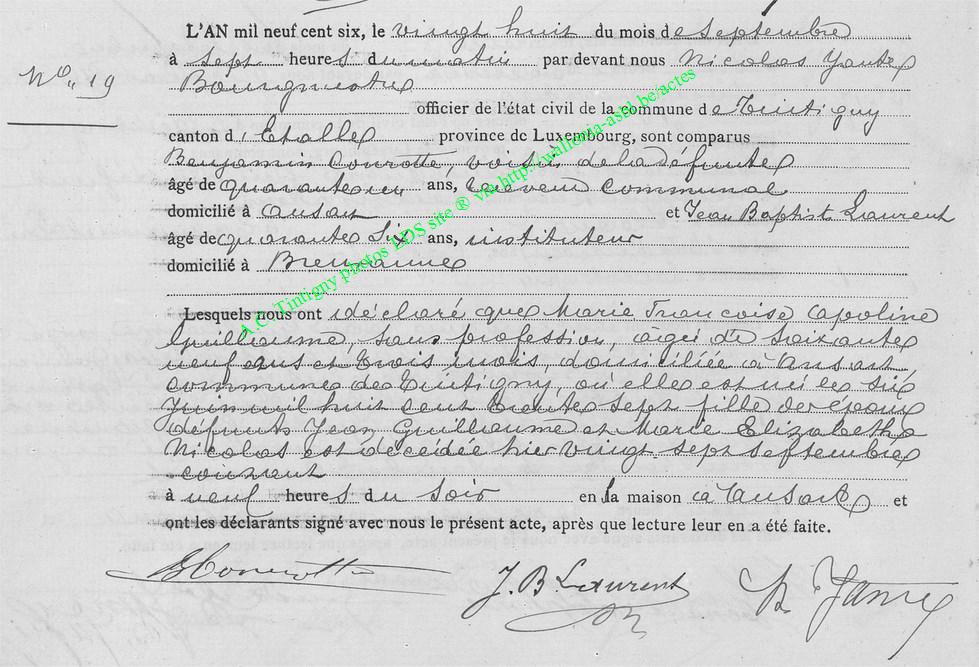 L'AN mil neuf cent six, le vingt huit du mois de septembre
Nº 19
à sept heures du matin par devant nous Nicolas
Bourgmestre
officier de l'état civil de la commune de Tintigny
canton d'Etalle province de Luxembourg, sont comparus
Benjamin Conrotte, voisin de la défunte
âgé de quarante un ans, communal
domicilié à ansart et Jean Baptist Laurent
âgé de quarante six ans, instituteur
domicilié à
Lesquels nous ont déclaré que Marie Françoise Capoline
Guillaume, sans profession, âgée de soixante
neuf ans et trois mois, domiciliée à Ansart
commune de Tintigny, où elle est née le six
Juin mil huit cent trente sept fille des époux
défunts Jean Guillaume et Marie Elizabeth
Nicolas est décédée hier vingt sept septembre
courant
à neuf heures du soir en la maison à ansart et
ont les déclarants signé avec nous le présent acte, après que lecture leur en a été faite.
BConrotte J. B. Laurent
A.C. Tintigny photos LDS site ® via http://wallonia-asbl.be/actes